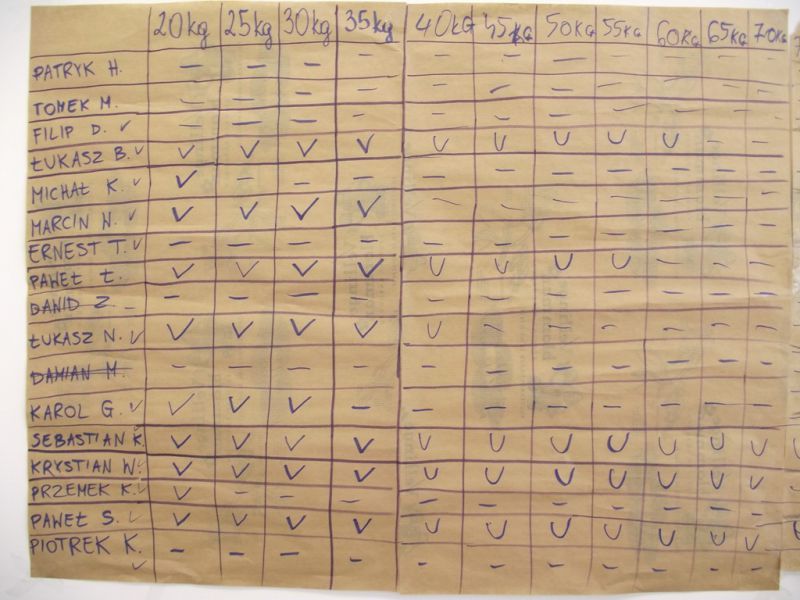 20kg 25kg 30kg 35kg 40kG 45kG 50KG 55KG 60KG 65KG 70KG
PATRYK H. – – – – – – – – – – –
TOMEK M. – – – – – – – – – – –
FILIP D. ✓ – – – – – – – – – – –
ŁUKASZ B. ✓ ✓ ✓ ✓ ✓ ✓ ✓ ✓ ✓ ✓ – –
MICHAŁ K. ✓ ✓ – – – – – – – – – –
MARCIN N. ✓ ✓ ✓ ✓ ✓ – – – – – – –
ERNEST T. ✓ – – – – – – – – – – –
PAWEŁ Ł. ✓ ✓ ✓ ✓ ✓ ✓ ✓ ✓ – – –
DAWID Z. – – – – – – – – – – – –
ŁUKASZ N. ✓ ✓ ✓ ✓ ✓ ✓ – – – – – –
DAMIAN M. – – – – – – – – – – –
KAROL G. ✓ ✓ ✓ ✓ – – – – – – – –
SEBASTIAN K. ✓ ✓ ✓ ✓ ✓ ✓ ✓ ✓ ✓ ✓ ✓
KRYSTIAN W. ✓ ✓ ✓ ✓ ✓ ✓ ✓ ✓ ✓ ✓ ✓ ✓
PRZEMEK K. ✓ ✓ – – – – – – – – – –
PAWEŁ S. ✓ ✓ ✓ ✓ ✓ ✓ ✓ ✓ ✓ ✓ ✓ ✓
PIOTREK K. ✓ – – – – – – – – – – –